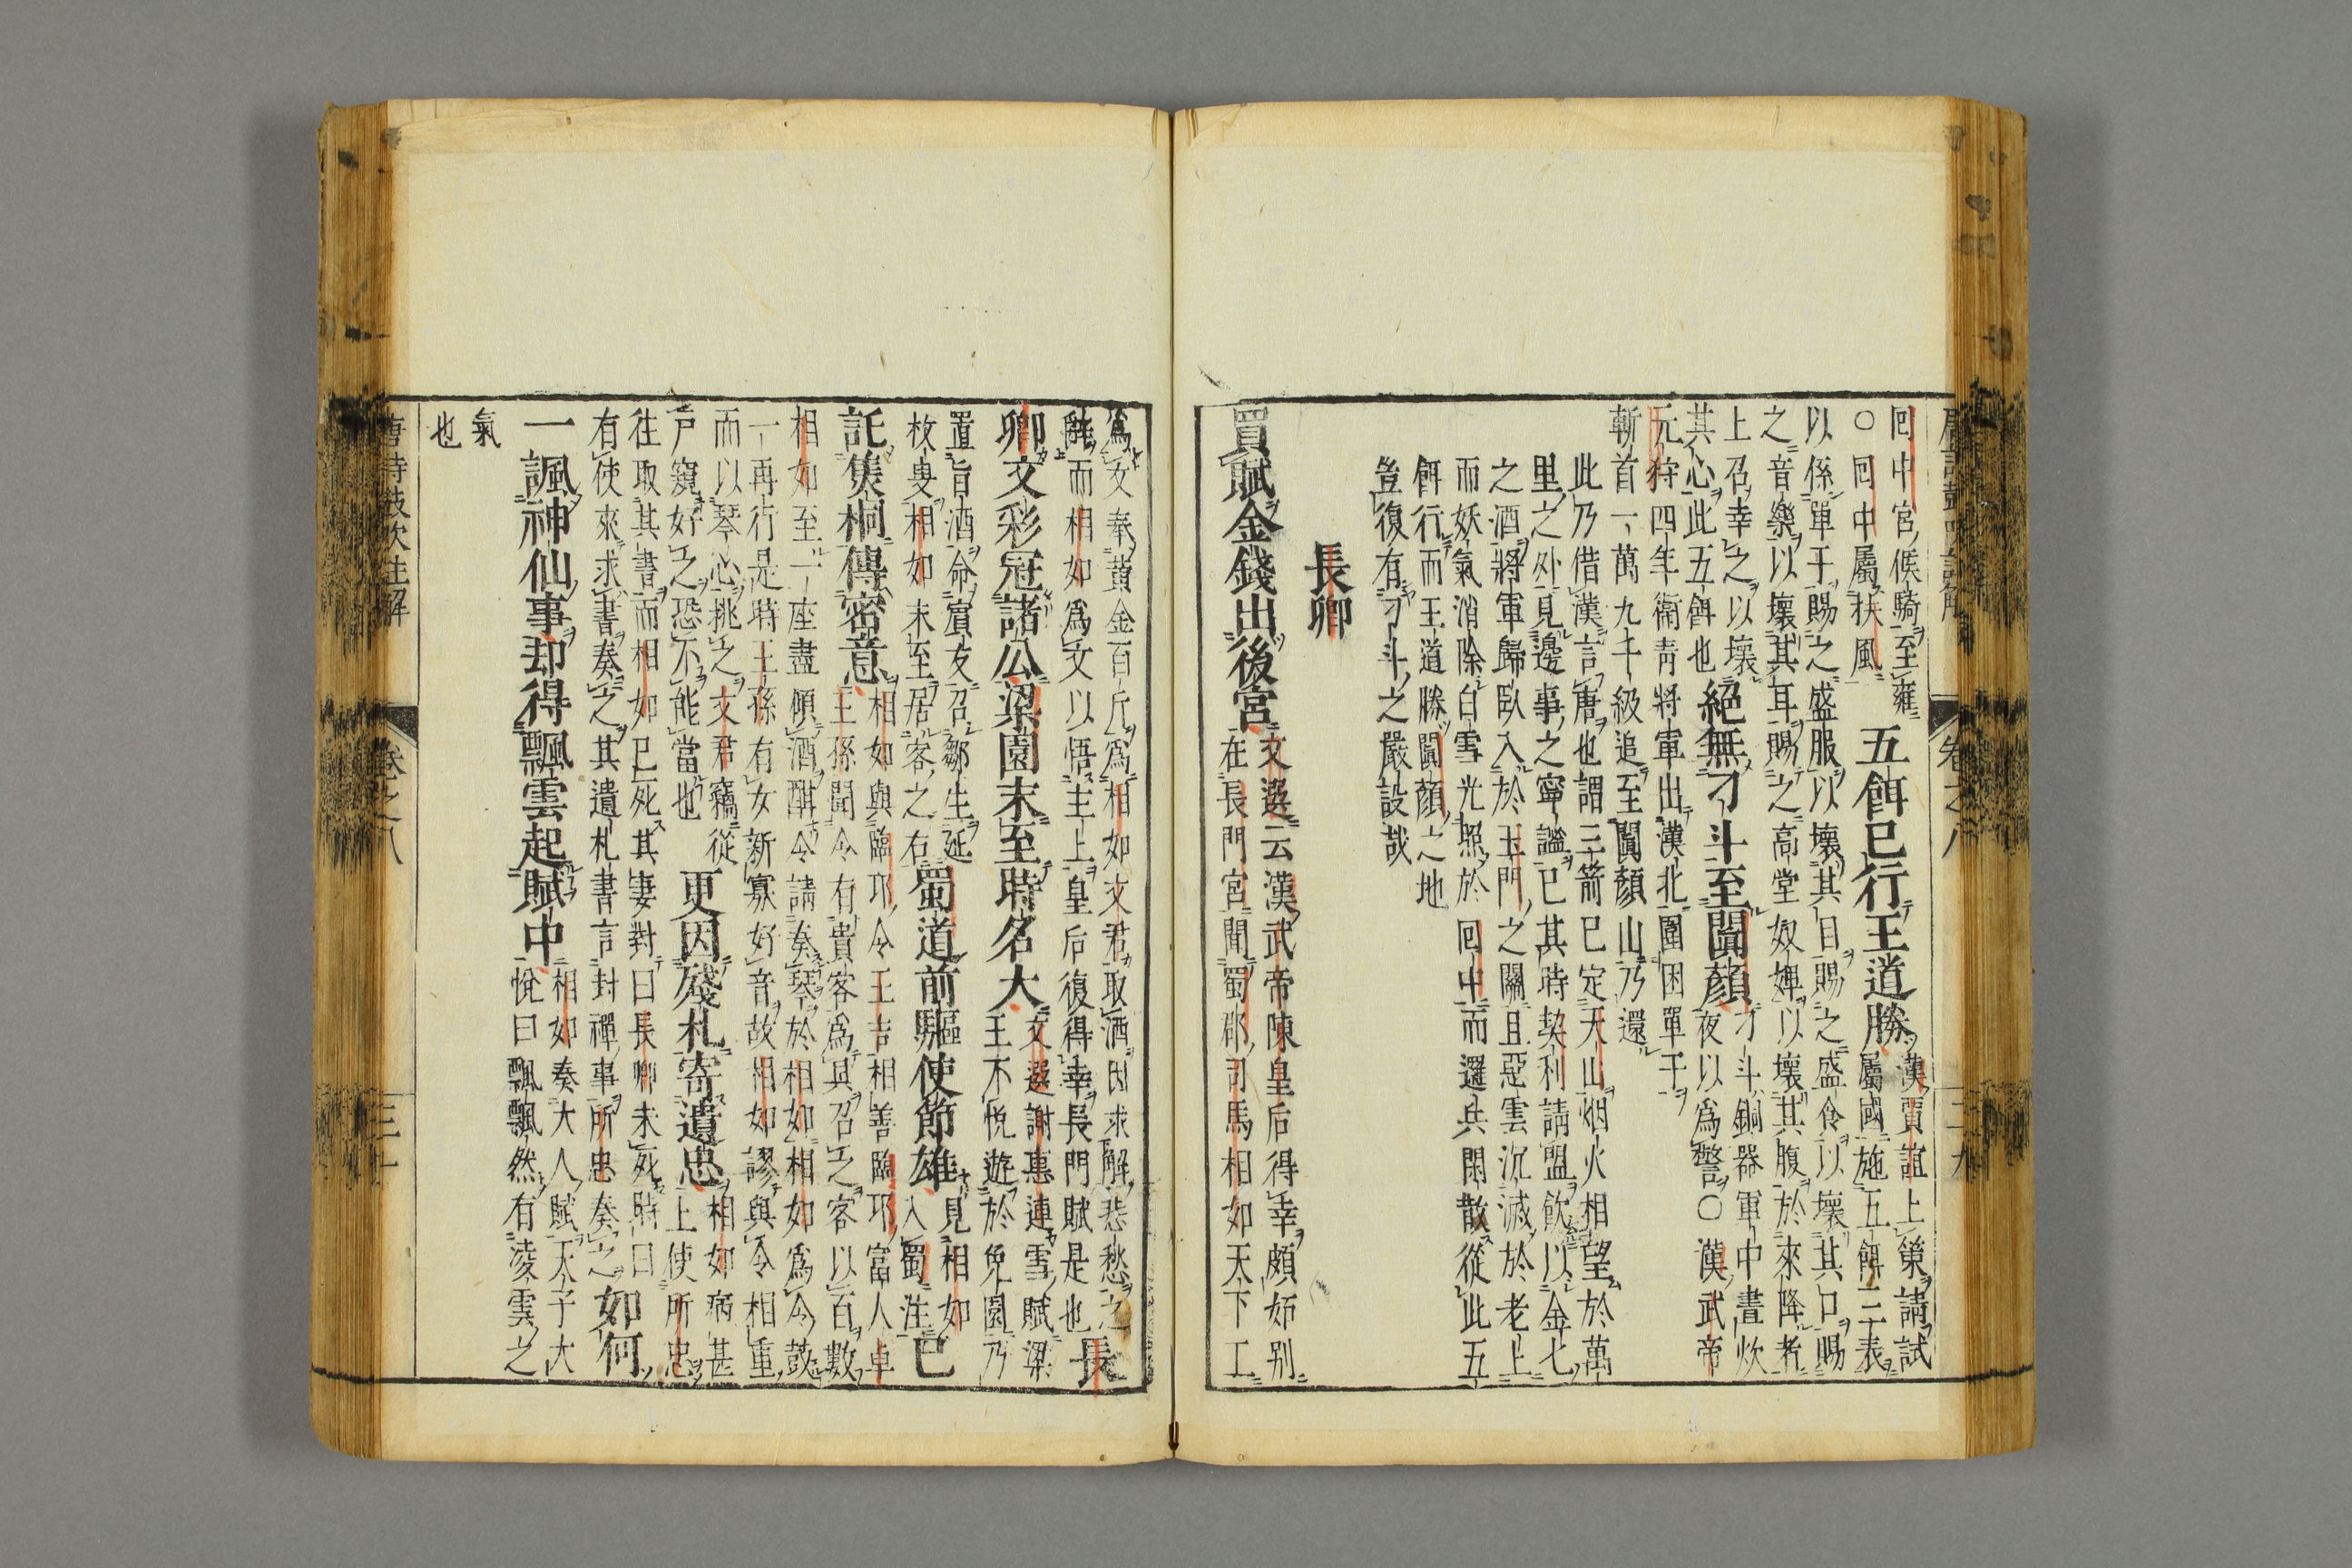 回中宮候騎至雍
○回中屬扶風
五餌已行王道勝
漢賈誼上策請試
屬國施五餌三表
以係單于賜之盛服以壞其目賜之盛食以壞其口賜
之音樂以壞其耳賜之高堂奴婢以壞其腹於來降者
上召幸之以壞
其心此五餌也
絕無刁斗至闐顏
刁斗銅器軍中晝炊
夜以爲警○漢武帝
元狩四年衞青將軍出漢北圍困單于
斬首一萬九千級追至闐顏山乃還
此乃借漢言唐也謂三箭已定天山烟火相望於萬
里之外見邊事之寧謐已其時契利請盟飲以金七
之酒將軍歸臥入於玉門之關且惡雲沉滅於老上
而妖氣消除白雪光照於回中而邏兵閑散從此五
餌行而王道勝闐顏之地
豈復有刁斗之嚴設哉
長卿
買賦金錢出後宮
文選云漢武帝陳皇后得幸頗妬別
在長門宮聞蜀郡司馬相如天下工
爲文奉黃金百斤爲相如文君取酒因求解悲愁之
辭而相如爲文以悟主上皇后復得幸長門賦是也
長
卿文彩冠諸公梁園末至時名大
文選謝惠連雪賦梁
王不悅遊於兔園乃
置旨酒命賓友召鄒生延
枚叟相如末至居客之右
蜀道前驅使節雄
見相如
入蜀注
已
託隻桐傳密意
相如與臨邛令王吉相善臨邛富人卓
王孫聞令有貴客爲具召之客以百數
相如至一座盡傾酒酣令請奏琴於相如相如爲令鼓
一再行是時王孫有女新寡好音故相如謬與令相重
而以琴心挑之文君竊從
戶窺好之恐不能當也
更因殘札寄遺忠
相如病甚
上使所忠
往取其書而相如已死其妻對曰長卿未死時曰
有使來求書奏之其遺札書言封禪事所忠奏之
如何
一諷神仙事却得飄雲起賦中
相如奏大人賦天子大
悅曰飄飄然有淩雲之
氣
也
唐詩鼓吹注解
卷之八